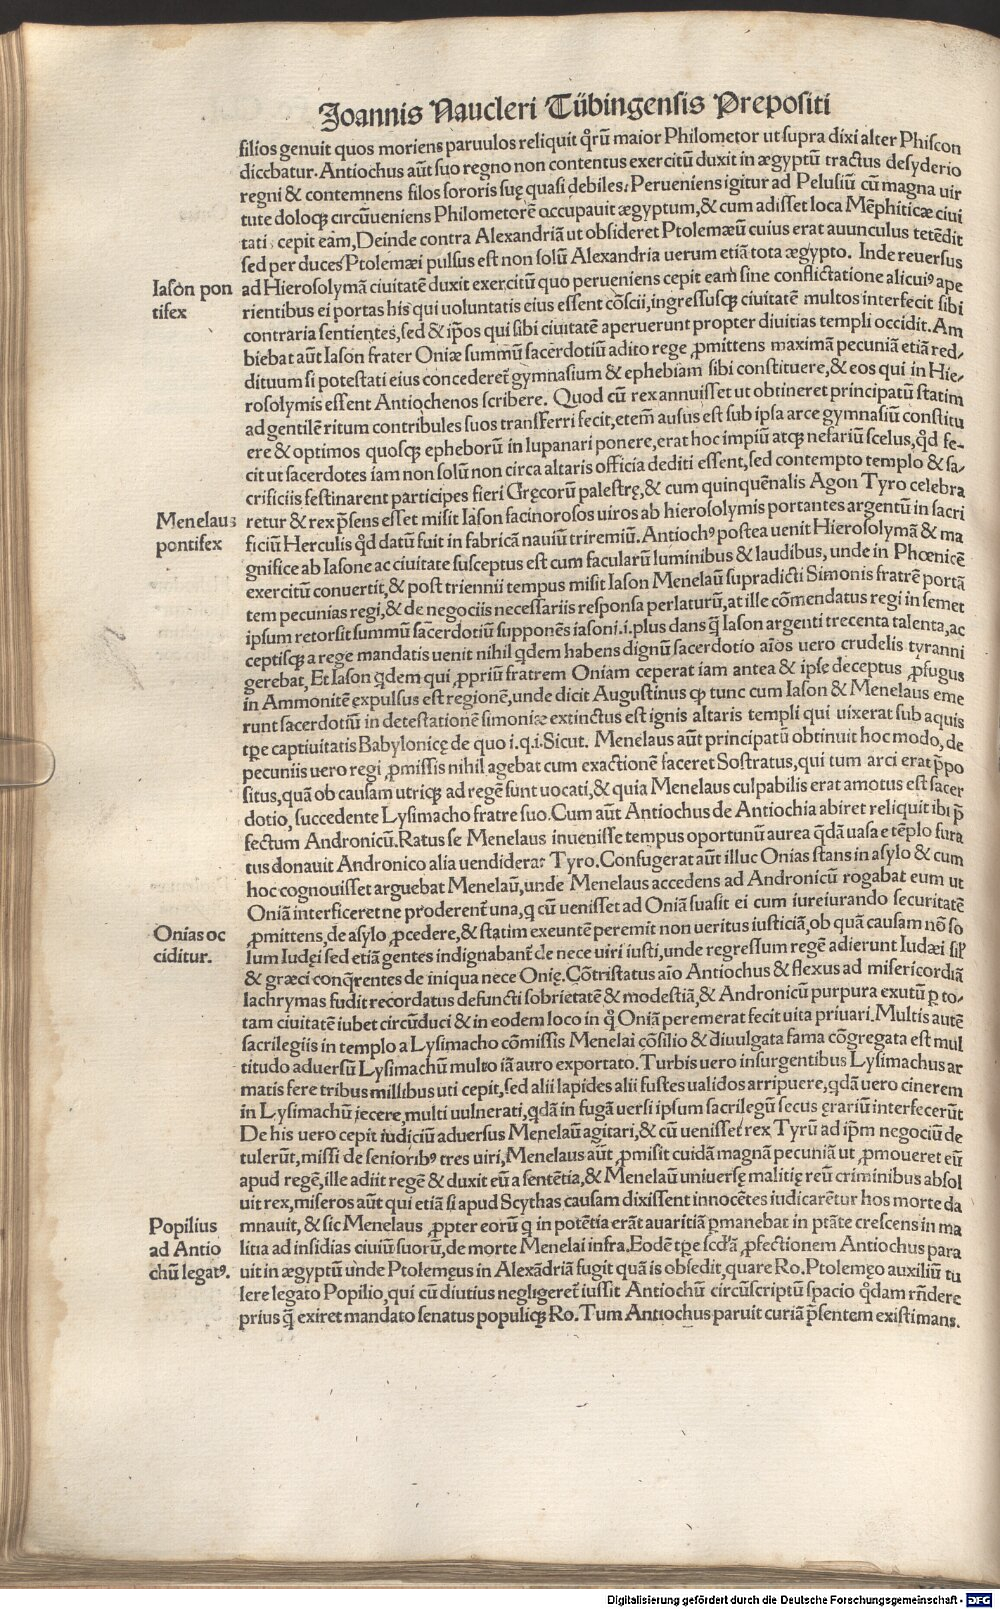 Joannis Naucleri Tübingensis Prepositi
filios genuit quos moriens paruulos reliquit qͦrū maior Philometor ut supra dixi alter Phiscon
dicebatur. Antiochus aūt suo regno non contentus exercitū duxit in ægyptū tractus desyderio
regni & contemnens filos sororis suę quasi debiles: Perueniens igitur ad Pelusiū cū magna uir
tute doloqꝫ circūueniens Philometorē occupauit ægyptum, & cum adisset loca Mēphiticæ ciui
tati, cepit eam, Deinde contra Alexandriā ut obsideret Ptolemæū cuius erat auunculus tetēdit
sed per duces Ptolemæi pulsus est non solū Alexandria uerum etiā tota ægypto. Inde reuersus
Iason pon
tifex
ad Hierosolymā ciuitatē duxit exercitū quo perueniens cepit eam sine conflictatione alicuiꝰ ape
rientibus ei portas his qui uoluntatis eius essent cōscii, ingressusqꝫ ciuitatē multos interfecit sibi
contraria sentientes, sed & ip̄os qui sibi ciuitatē aperuerunt propter diuitias templi occidit. Am
biebat aūt Iason frater Oniæ summū sacerdotiū adito rege ꝓmittens maximā pecuniā etiā red/
dituum si potestati eius concederet̄ gymnasium & ephebiam sibi constituere, & eos qui in Hie/
rosolymis essent Antiochenos scribere. Quod cū rex annuisset ut obtineret principatū statim
ad gentilē ritum contribules suos transferri fecit, etem̄ ausus est sub ipsa arce gymnasiū constitu
ere & optimos quosqꝫ epheborū in lupanari ponere, erat hoc impiū atqꝫ nefariū scelus, qͦd fe-
cit ut sacerdotes iam non solū non circa altaris officia dediti essent, sed contempto templo & sa/
crificiis festinarent participes fieri Gręcorū palestrę, & cum quinquēnalis Agon Tyro celebra
Menelaus
pontifex
retur & rex p̄sens esset misit Iason facinorosos uiros ab hierosolymis portantes argentū in sacri
ficiū Herculis qͦd datū fuit in fabricā nauiū triremiū. Antiochꝰ postea uenit Hierosolymā & ma
gnifice ab Iasone ac ciuitate susceptus est cum facularū luminibus & laudibus, unde in Phœnicē
exercitū conuertit, & post triennii tempus misit Iason Menelaū supradicti Simonis fratrē portā
tem pecunias regi, & de negociis necessariis responsa perlaturū, at ille cōmendatus regi in semet
ipsum retorsit summū sacerdotiū supponēs iasoni .i. plus dans q̄ Iason argenti trecenta talenta, ac
ceptisqꝫ a rege mandatis uenit nihil qdem habens dignū sacerdotio aīos uero crudelis tyranni
gerebat, Et Iason qdem qui ꝓpriū fratrem Oniam ceperat iam antea & ipse deceptus ꝓfugus
in Ammonitē expulsus est regionē, unde dicit Augustinus ꝙ tunc cum Iason & Menelaus eme
runt sacerdotiū in detestationē simoniæ extinctus est ignis altaris templi qui uixerat sub aquis
tp̄e captiuitatis Babylonicę de quo i.q.i. Sicut. Menelaus aūt principatū obtinuit hoc modo, de
pecuniis uero regi ꝓmissis nihil agebat cum exactionē faceret Sostratus, qui tum arci erat p̄po
situs, quā ob causam utriqꝫ ad regē sunt uocati, & quia Menelaus culpabilis erat amotus est sacer
dotio, succedente Lysimacho fratre suo. Cum aūt Antiochus de Antiochia abiret reliquit ibi p̄
fectum Andronicū. Ratus se Menelaus inuenisse tempus oportunū aurea qdā uasa e tēplo fura
tus donauit Andronico alia uendiderat Tyro. Confugerat aūt illuc Onias stans in asylo & cum
hoc cognouisset arguebat Menelaū, unde Menelaus accedens ad Andronicū rogabat eum ut
Oniā interficeret ne proderent̄ una, q cū uenisset ad Oniā suasit ei cum iureiurando securitatē
Onias oc
ciditur.
ꝓmittens, de asylo ꝓcedere, & statim exeuntē peremit non ueritus iusticiā, ob quā causam nō so
lum Iudęi sed etiā gentes indignabant̄ de nece uiri iusti, unde regressum regē adierunt Iudæi sil̄
& græci conq̄rentes de iniqua nece Onię. Cōtristatus aīo Antiochus & flexus ad misericordiā
lachrymas fudit recordatus defuncti sobrietatē & modestiā, & Andronicū purpura exutū ꝑ to/
tam ciuitatē iubet circūduci & in eodem loco in qͦ Oniā peremerat fecit uita priuari. Multis autē
sacrilegiis in templo a Lysimacho cōmissis Menelai cōsilio & diuulgata fama cōgregata est mul
titudo aduersū Lysimachū multo iā auro exportato. Turbis uero insurgentibus Lysimachus ar
matis fere tribus millibus uti cepit, sed alii lapides alii fustes ualidos arripuere, qdā uero cinerem
in Lysimachū iecere, multi uulnerati, qdā in fugā uersi ipsum sacrilegū secus ęrariū interfecerūt
De his uero cepit iudiciū aduersus Menelaū agitari, & cū uenisset rex Tyrū ad ip̄m negociū de
tulerūt, missi de senioribꝰ tres uiri, Menelaus aūt ꝓmisit cuidā magnā pecuniā ut ꝓmoueret eū
apud regē, ille adiit regē & duxit eū a sentētia, & Menelaū uniuersę malitię reū criminibus absol
uit rex, miseros aūt qui etiā si apud Scythas causam dixissent innocētes iudicarētur hos morte da
Popilius
ad Antio
chū legatꝰ.
mnauit, & sic Menelaus ꝓpter eorū q in potētia erāt auaritiā ꝑmanebat in ptāte crescens in ma
litia ad insidias ciuiū suorū, de morte Menelai infra. Eodē tp̄e scd̄ā ꝓfectionem Antiochus para
uit in ægyptū unde Ptolemęus in Alexādriā fugit quā is obsedit, quare Ro. Ptolemęo auxiliū tu
lere legato Popilio, qui cū diutius negligeret̄ iussit Antiochū circūscriptū spacio qͦdam rn̄dere
prius q̄ exiret mandato senatus populiqꝫ Ro. Tum Antiochus paruit curiā p̄sentem existimans.
Digitalisierung gefördert durch die Deutsche Forschungsgemeinschaft - DFG